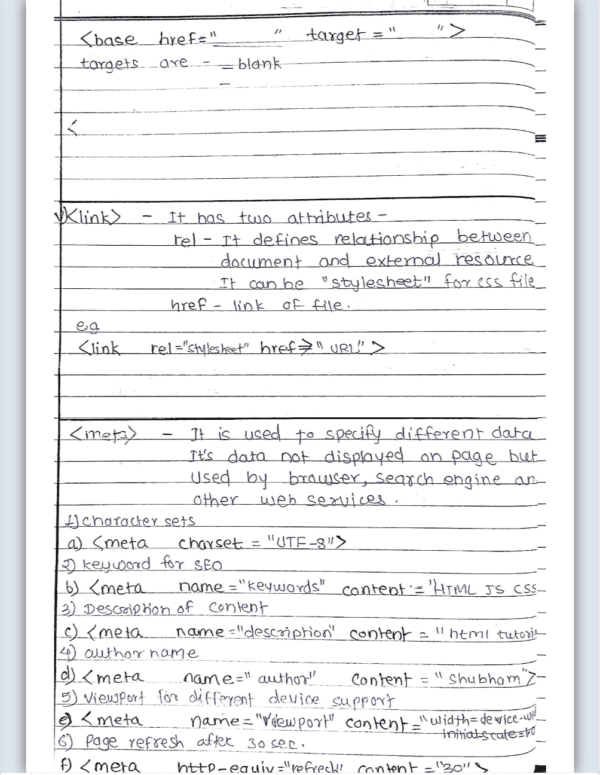 <base href="______" target = " ">
targets are - _blank
_
<
<link> - It has two attributes -
rel - It defines relationship between
document and external resource
It can be "stylesheet" for css file
href - link of file.
eg
<link rel="stylesheet" href="URL">
<meta> - It is used to specify different data
It's data not displayed on page but
used by browser, search engine an
other web services.
1) character sets
a) <meta charset = "UTF-8">
2) keyword for SEO
b) <meta name="keywords" content = 'HTML JS CSS
3) Description of content
c) <meta name="description" content = "html tutori
4) author name
d) <meta name=" author" content = "Shubham">
5) Viewport for different device support
e) <meta name="Viewport" content="width=device-wi
initial-scale=1.0
6) Page refresh after 30 sec.
f) <meta http-equiv="refresh" content ="30">